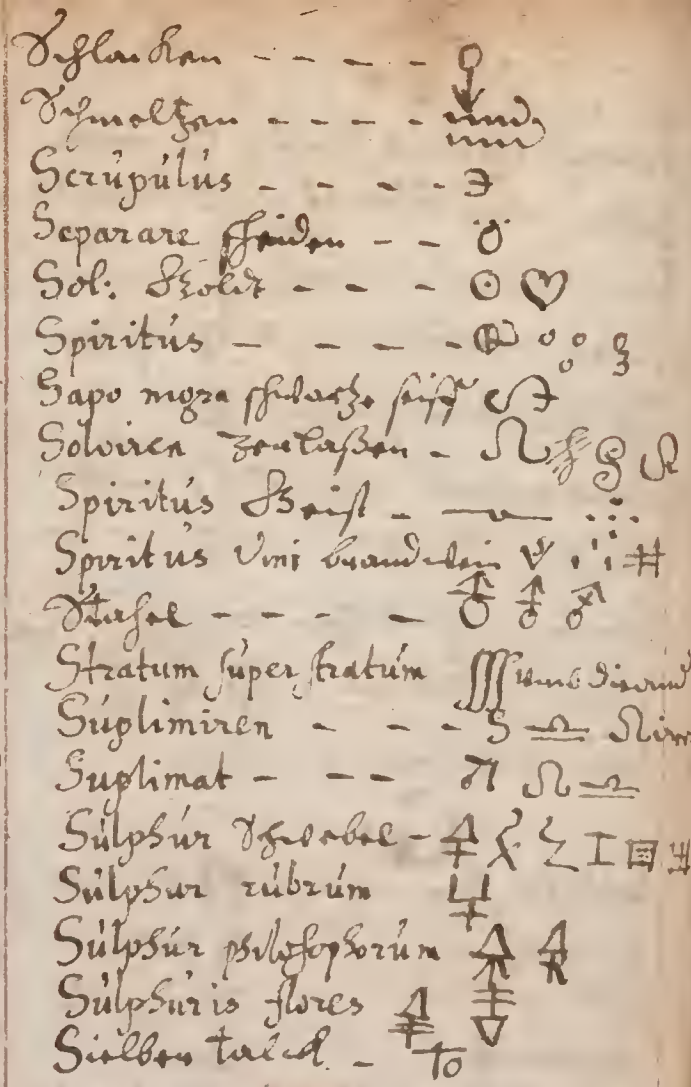 Schlacken - - - - -
Schmeltzen - - - -
Scrúpúlús - - - - ℈
Separare scheiden - -
Sol: Goldt - - - ☉ ♡
Spiritús - - - -
Sapo nigra schwartze seiff
Solviren zerlaßen -
Spiritús Geist -
Spiritus Vini brandwein
Stahel - - - -
Stratum súper stratúm SSS
Súglimiren - - -
Suglimat - - -
Súlphúr Schwebel -
Súlphur rúbrúm
Súlphúr philosophorúm
Súlphúris flores
Sielber talck -